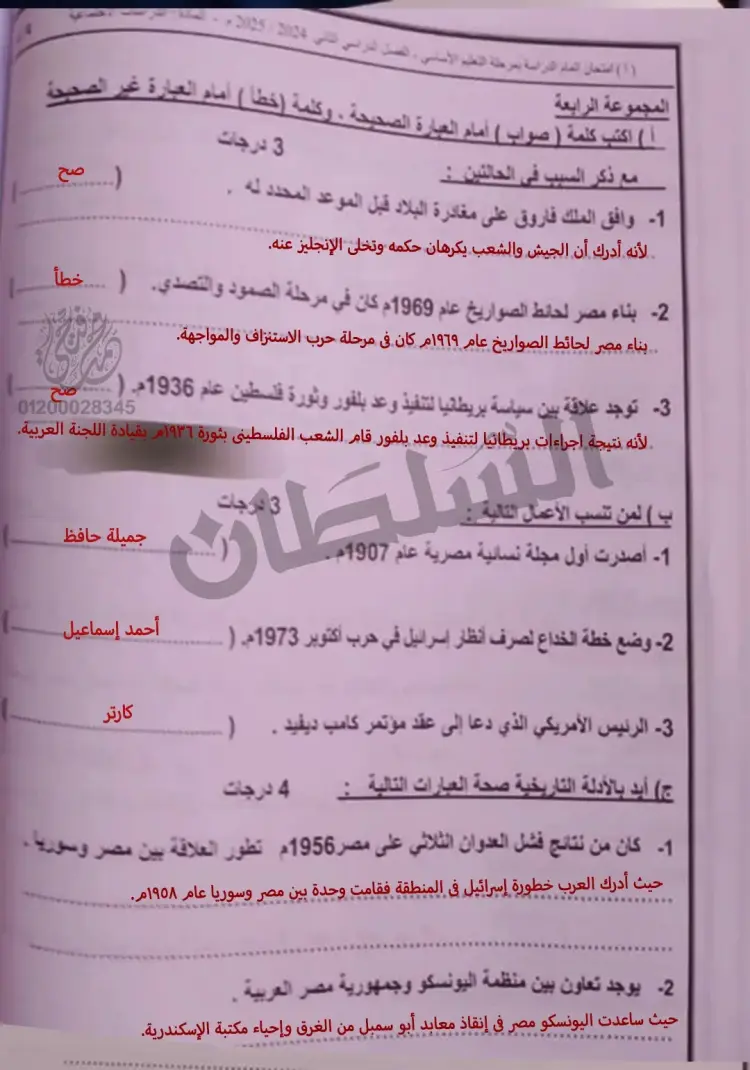 ( ١ ) امتحان اتمام الدراسة بمرحلة التعليم الأساسي - الفصل الدراسي الثاني 2024 / 2025 م - المادة : الدراسات الاجتماعية
المجموعة الرابعة
أ ) اكتب كلمة ( صواب ) أمام العبارة الصحيحة ، وكلمة (خطأ ) أمام العبارة غير الصحيحة
مع ذكر السبب في الحالتين : 3 درجات
1- وافق الملك فاروق على مغادرة البلاد قبل الموعد المحدد له . ( صح )
لأنه أدرك أن الجيش والشعب يكرهان حكمه وتخلى الإنجليز عنه.
2- بناء مصر لحائط الصواريخ عام 1969م كان في مرحلة الصمود والتصدي. ( خطأ )
بناء مصر لحائط الصواريخ عام ١٩٦٩م كان فى مرحلة حرب الاستنزاف والمواجهة.
3- توجد علاقة بين سياسة بريطانيا لتنفيذ وعد بلفور وثورة فلسطين عام 1936م. ( صح )
01200028345
لأنه نتيجة اجراءات بريطانيا لتنفيذ وعد بلفور قام الشعب الفلسطينى بثورة ١٩٣٦م بقيادة اللجنة العربية.
السلطان
ب ) لمن تنسب الأعمال التالية : 3 درجات
1- أصدرت أول مجلة نسائية مصرية عام 1907م . ( جميلة حافظ )
2- وضع خطة الخداع لصرف أنظار إسرائيل في حرب أكتوبر 1973م. ( أحمد إسماعيل )
3- الرئيس الأمريكي الذي دعا إلى عقد مؤتمر كامب ديفيد . ( كارتر )
ج) أيد بالأدلة التاريخية صحة العبارات التالية : 4 درجات
1- كان من نتائج فشل العدوان الثلاثي على مصر1956م تطور العلاقة بين مصر وسوريا .
حيث أدرك العرب خطورة إسرائيل فى المنطقة فقامت وحدة بين مصر وسوريا عام ١٩٥٨م.
2- يوجد تعاون بين منظمة اليونسكو وجمهورية مصر العربية .
حيث ساعدت اليونسكو مصر فى إنقاذ معابد أبو سمبل من الغرق وإحياء مكتبة الإسكندرية.